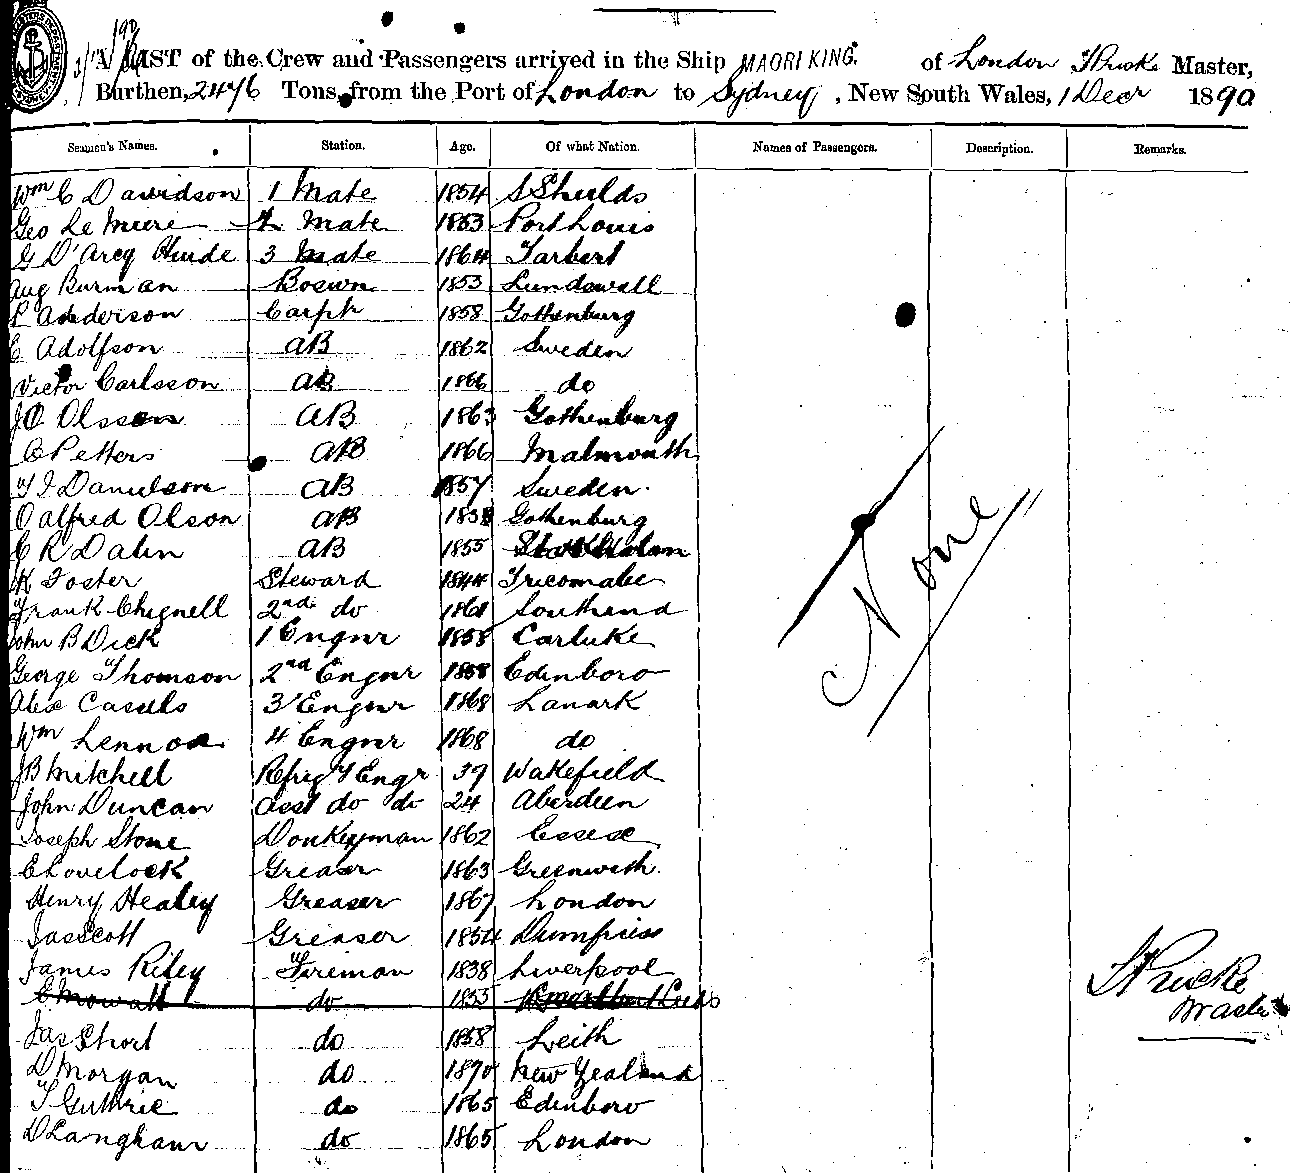 A LIST of the Crew and Passengers arrived in the Ship MAORI KING. of London Master,
Burthen, 2476 Tons, from the Port of London to Sydney, New South Wales, 1 Decr 1890
Seamen's Names. Station. Age. Of what Nation. Names of Passengers. Description. Remarks.
Wm C Davidson 1 Mate 1854 S Shields
Geo Le Miere 2 Mate 1853 Port Louis
G D'Arcy Hinde 3 Mate 1864 Tarbert
Aug Burman Boswn 1853 Lundswall
P Anderson Carptr 1858 Gothenburg
C Adolfson AB 1862 Sweden
Victor Carlsson AB 1866 do
J O Olsson AB 1863 Gothenburg
C Petters AB 1866 Malmouth
T J Danielson AB 1857 Sweden
O Alfred Olson AB 1858 Gothenburg
C R Dalin AB 1855 Stockholm
K Foster Steward 1844 Tricomalee
Frank Chignell 2nd do 1861 Southend
John B Dick 1 Engnr 1858 Carluke
George Thomson 2nd Engnr 1858 Edinboro
Alex Cassels 3 Engnr 1868 Lanark
Wm Lennox 4 Engnr 1868 do
J B Mitchell Refrig Engr 39 Wakefield
John Duncan Asst do do 24 Aberdeen
Joseph Stone Donkeyman 1862 Essex
C Lovelock Greaser 1863 Greenwich
Henry Healey Greaser 1867 London
Jas Scott Greaser 1854 Dumfries
James Riley Fireman 1838 Liverpool
C Mowatt do 1855 Leeds
Jas Short do 1858 Leith
D Morgan do 1870 New Zealand
T Guthrie do 1865 Edinboro
D Langham do 1865 London
None
Master